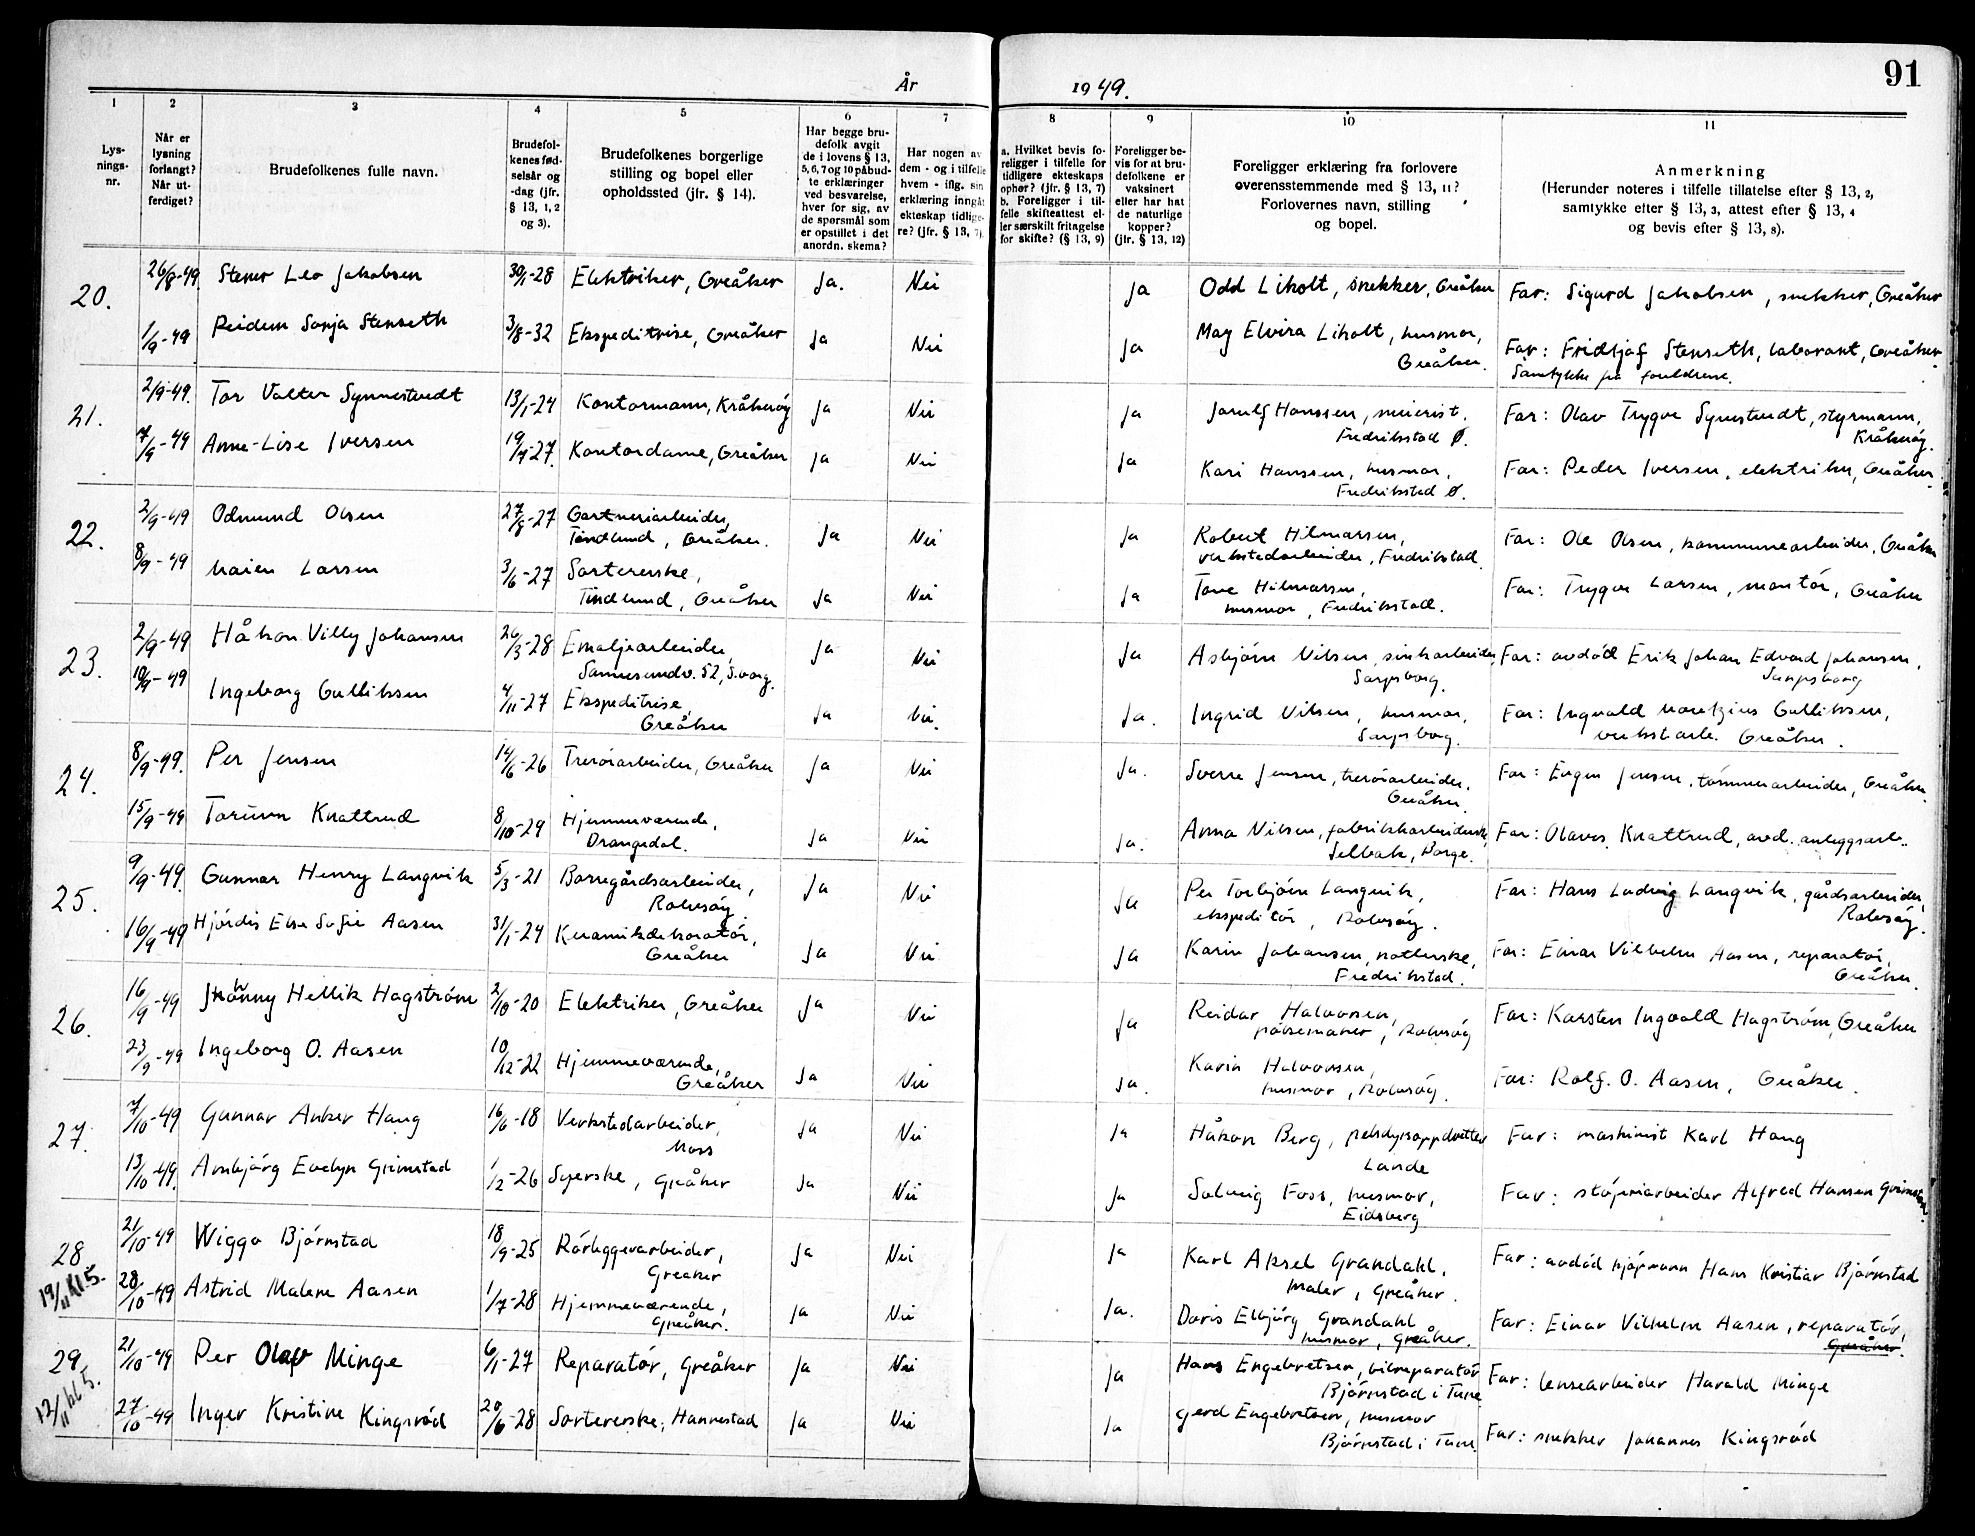 År 1949.
91
1 2 3 4 5 6 7 8 9 10 11
Lys-
nings-
nr.
Når er
lysning
forlangt?
Når ut-
ferdiget?
Brudefolkenes fulle navn.
Brudefol-
kenes fød-
selsår og
-dag (jfr.
§ 13, 1, 2
og 3).
Brudefolkenes borgerlige
stilling og bopel eller
opholdssted (jfr. § 14).
Har begge bru-
defolk avgit
de i lovens § 13,
5, 6, 7 og 10 påbud-
te erklæringer
ved besvarelse,
hver for sig, av
de spørsmål som
er opstillet i det
anordn. skema?
Har nogen av
dem - og i tilfelle
hvem - iflg. sin
erklæring inngåt
ekteskap tidlige-
re? (jfr. § 13, 7).
a. Hvilket bevis fo-
religger i tilfelle for
tidligere ekteskaps
ophør? (jfr. § 13, 7)
b. Foreligger i til-
felle skifteattest el-
ler særskilt fritagelse
for skifte? (§ 13, 9)
Foreligger be-
vis for at bru-
defolkene er
vaksinert
eller har hat
de naturlige
kopper?
(jfr. § 13, 12)
Foreligger erklæring fra forlovere
overensstemmende med § 13, 11?
Forlovernes navn, stilling
og bopel.
Anmerkning
(Herunder noteres i tilfelle tillatelse efter § 13, 2,
samtykke efter § 13, 3, attest efter § 13, 4
og bevis efter § 13, 8).
20. 26/8-49 Stener Leo Jakobsen 30/1-28 Elektriker, Greåker Ja. Nei Ja Odd Liholt, snekker, Greåker Far: Sigurd Jakobsen, snekker, Greåker
1/9-49 Reidun Sonja Stenseth 3/8-32 Ekspeditrise, Greåker Ja Nei Ja May Elvira Liholt, husmor,
Greåker. Far: Fridtjof Stenseth, laborant, Greåker.
Samtykke fra foreldrene.
21. 2/9-49. Tor Valter Synnestvedt 13/1-24 Kontormann, Kråkerøy Ja Nei Ja Jarulf Hanssen, meierist,
Fredrikstad Ø. Far: Olav Trygve Synnestvedt, styrmann,
Kråkerøy.
7/9-49 Anne-Lise Iversen 19/9-27. Kontordame, Greåker Ja Nei Ja Kari Hanssen, husmor,
Fredrikstad Ø. Far: Peder Iversen, elektriker, Greåker.
22. 2/9-49 Odmund Olsen 27/8-27 Gartneriarbeider,
Tindlund, Greåker. Ja Nei Ja Robert Hilmarsen,
verkstedarbeider, Fredrikstad Far: Ole Olsen, kommunearbeider, Greåker
8/9-49 Maien Larsen 3/6-27 Sortererske,
Tindlund, Greåker Ja Nei Ja Tove Hilmarsen,
husmor, Fredrikstad. Far: Trygve Larsen, montør, Greåker
23. 2/9-49 Håkon Villy Johansen 26/3-28 Emaljearbeider,
Sannesundv. 52, S.borg. Ja Nei Ja Asbjørn Nilsen, sinkarbeider,
Sarpsborg. Far: avdød Erik Johan Edvard Johansen,
Sarpsborg
10/9-49 Ingeborg Gulliksen 4/11-27 Ekspeditrise,
Greåker Ja Nei. Ja. Ingrid Nilsen, husmor,
Sarpsborg. Far: Ingvald Mauritzius Gulliksen,
verkst.arb. Greåker.
24. 8/9-49. Per Jensen 14/6-26 Treviarbeider, Greåker Ja Nei Ja. Sverre Jensen, treviarbeider,
Greåker Far: Eugen Jensen, tømmerarbeider, Greåker.
15/9-49 Torunn Knattrud 8/10-29 Hjemmeværende,
Drangedal. Ja Nei Ja. Anna Nilsen, fabrikkarbeiderske,
Selbak, Borge. Far: Olaves Knattrud, avd. anleggsarb.
25. 9/9-49. Gunnar Henry Langvik 5/3-21 Borregårdsarbeider,
Rolvsøy Ja Nei Ja Per Torbjørn Langvik,
ekspeditør, Rolvsøy. Far: Hans Ludvig Langvik, gårdsarbeider,
Rolvsøy.
16/9-49 Hjørdis Else Sofie Aasen 31/1-24 Keramikdekoratør,
Greåker Ja Nei Ja Karin Johansen, notterske,
Fredrikstad. Far: Einar Vilhelm Aasen, reparatør,
Greåker.
26. 16/9-49 Johnny Hellik Hagstrøm 2/10-20 Elektriker, Greåker Ja Nei Ja Reidar Halvorsen,
pølsemaker, Rolvsøy Far: Karsten Ingvald Hagstrøm, Greåker
23/9-49 Ingeborg O. Aasen 10/12-22 Hjemmeværende,
Greåker Ja Nei Ja. Karin Halvorsen,
husmor, Rolvsøy. Far: Rolf. O. Aasen, Greåker.
27. 7/10-49 Gunnar Anker Haug 16/6-18 Verkstedarbeider,
Moss Ja Nei Ja Håkon Berg, pelsdyroppdretter
Lande Far: maskinist Karl Haug
13/10-49. Arnbjørg Evelyn Grimstad 1/2-26 Syerske, Greåker Ja Nei Ja Solveig Foss, husmor,
Eidsberg Far: støperiarbeider Alfred Hansen Grimstad.
28 21/10-49 Wiggo Bjørnstad 18/9-25 Rørleggerarbeider,
Greåker Ja Nei Ja Karl Aksel Grandahl,
Maler, Greåker. Far: avdød kjøpmann Hans Kristian Bjørnstad
19/11 kl.5. 28/10-49 Astrid Malene Aasen 1/7-28 Hjemmeværende,
Greåker. Ja Nei Ja. Doris Elbjørg Grandahl
husmor, Greåker. Far: Einar Vilhelm Aasen, reparatør,
Greåker.
29. 21/10-49 Per Olav Minge 6/1-27 Reparatør, Greåker Ja Nei Ja Hans Engebretsen, bilreparatør
Bjørnstad i Tune Far: lensearbeider Harald Minge
12/11 kl 5. 27/10-49 Inger Kristine Kingsrød 20/6-28 Sortererske, Hannestad Ja Nei Ja Gerd Engebretsen, husmor
Bjørnstad i Tune. Far: snekker Johannes Kingsrød